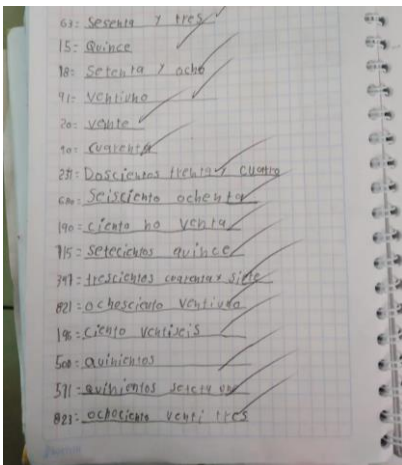 63: Sesenta y tres
15: Quince
78: Setenta y ocho
91: Ventiuno
20: vente
40: cuarenta
231: Doscientos trenta y cuatro
680: Seisciento ochenta
190: ciento no venta
715: setecientos quince
347: trescientos cuarenta y siete
821: ochesciento ventiudo
196: Ciento ventiseis
500: quinientos
571: quinientos seteta
823: ochociento venti tres